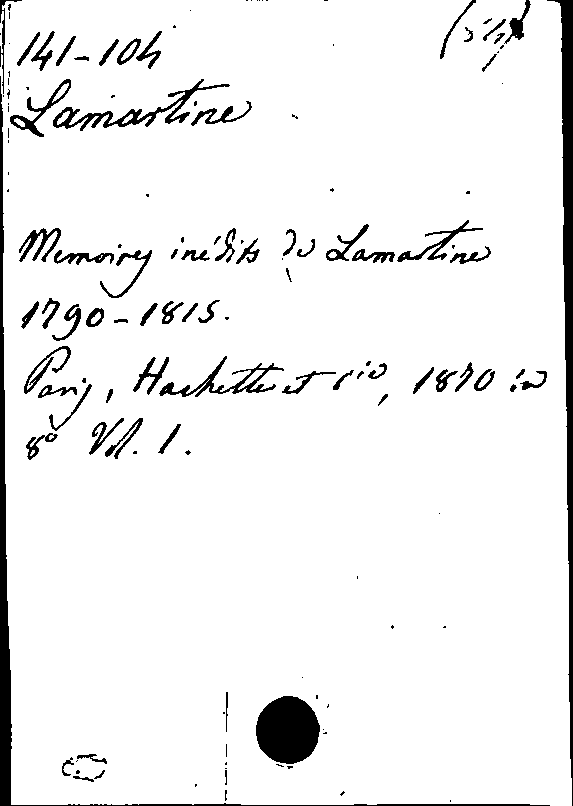 141-104
Lamartine
Memoires inédits de Lamartine
1790-1815.
Paris, Hachette et Cie, 1870 in
8° Vol. 1.